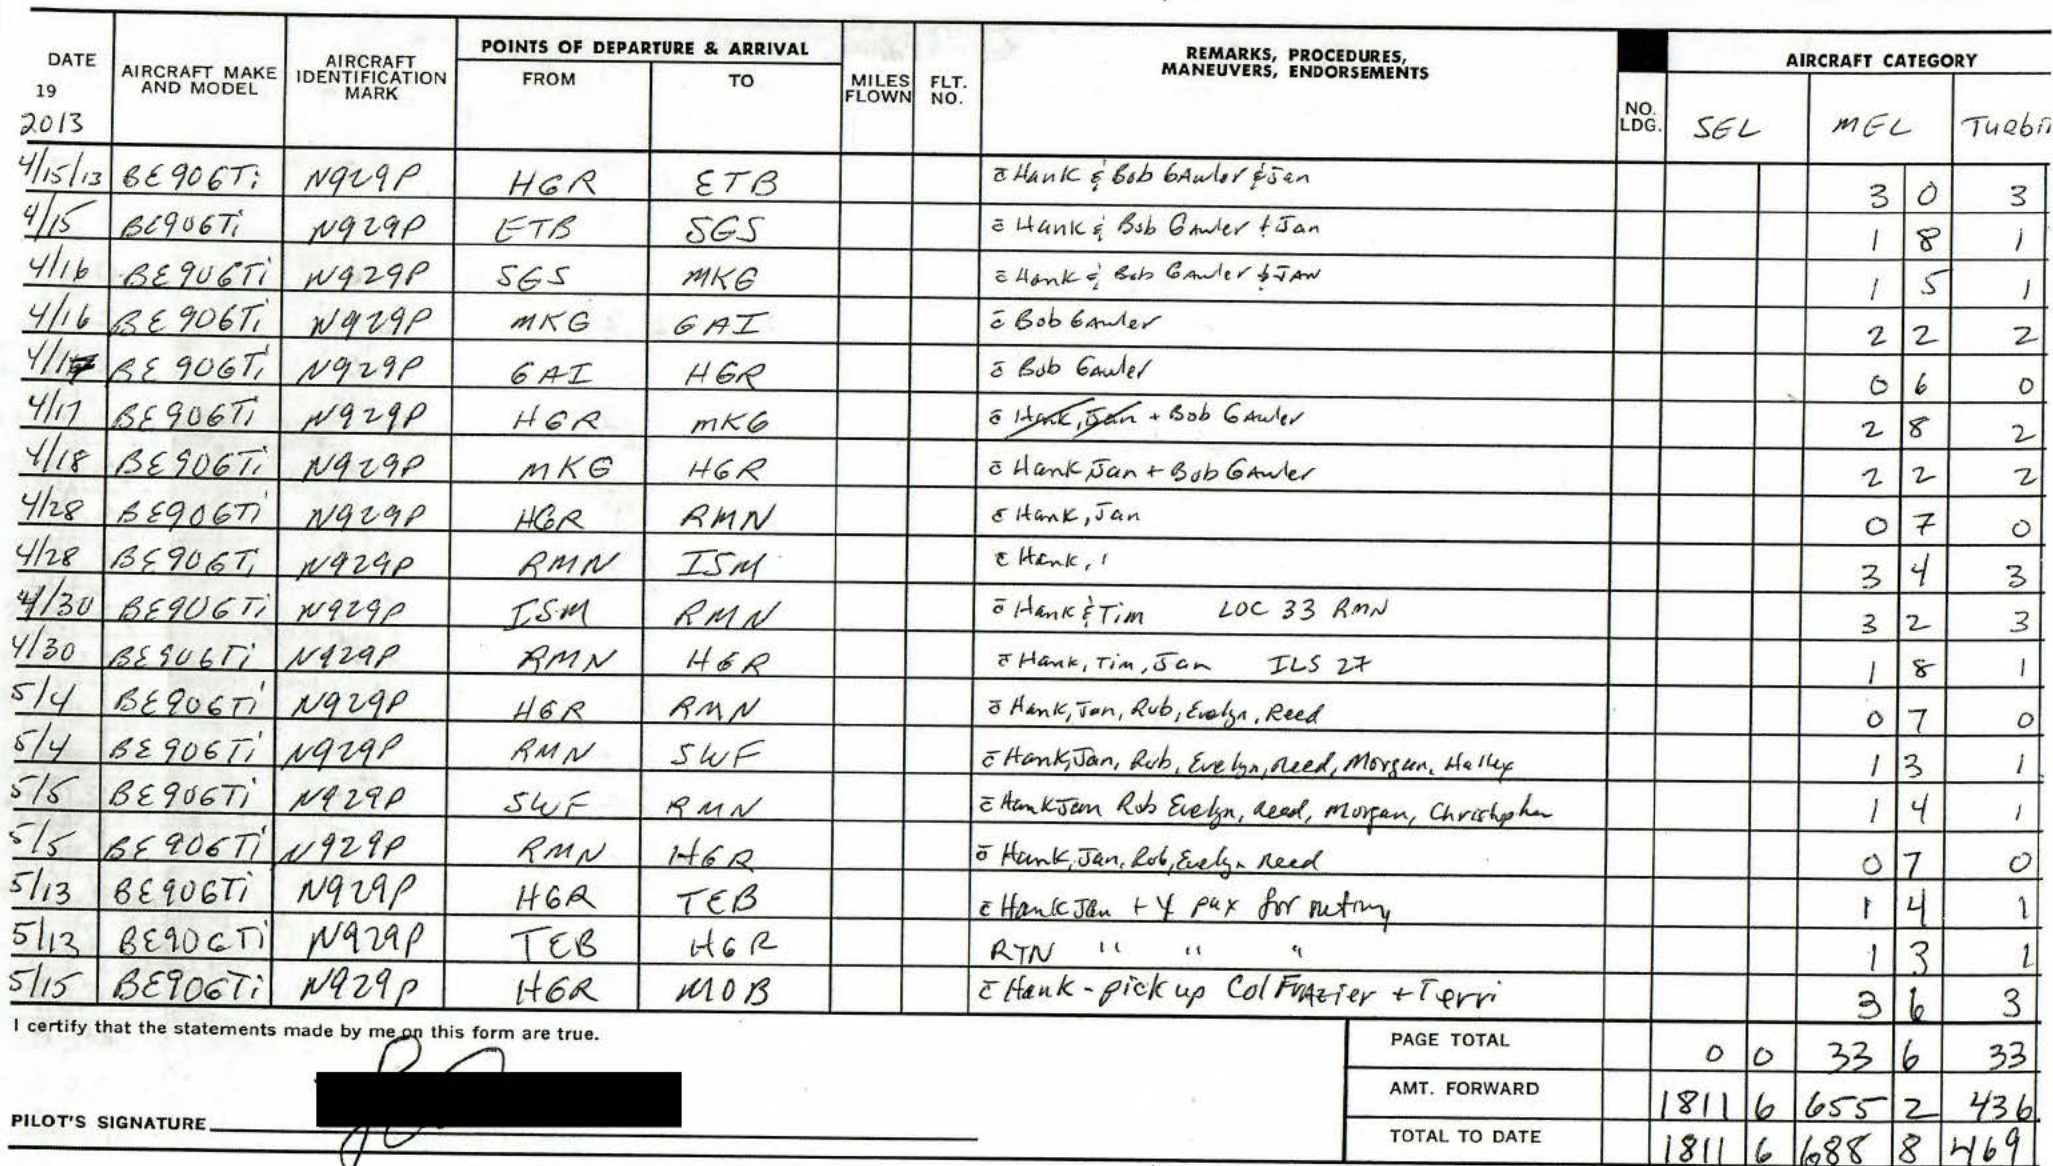 DATE AIRCRAFT MAKE AND MODEL AIRCRAFT IDENTIFICATION MARK POINTS OF DEPARTURE & ARRIVAL FROM TO MILES FLOWN FLT. NO. REMARKS, PROCEDURES, MANEUVERS, ENDORSEMENTS NO. LDG. AIRCRAFT CATEGORY
19 2013 SEL MEL
4/15/13 BE90GTi N929P HGR ETB c̄ Hank & Bob Gawler & Jan 3 0 3
4/15 BE90GTi N929P ETB SGS c̄ Hank & Bob Gawler + Jan 1 8 1
4/16 BE90GTi N929P SGS MKG c̄ Hank & Bob Gawler & JAN 1 5 1
4/16 BE90GTi N929P MKG GAI c̄ Bob Gawler 2 2 2
4/17 BE90GTi N929P GAI HGR c̄ Bob Gawler 0 6 0
4/17 BE90GTi N929P HGR MKG c̄ Hank, Jan + Bob Gawler 2 8 2
4/18 BE90GTi N929P MKG HGR c̄ Hank, Jan + Bob Gawler 2 2 2
4/28 BE90GTi N929P HGR RMN c̄ Hank, Jan 0 7 0
4/28 BE90GTi N929P RMN ISM c̄ Hank, 3 4 3
4/30 BE90GTi N929P ISM RMN c̄ Hank & Tim LOC 33 RMN 3 2 3
4/30 BE90GTi N929P RMN HGR c̄ Hank, Tim, Jan ILS 27 1 8 1
5/4 BE90GTi N929P HGR RMN c̄ Hank, Jan, Rob, Evelyn, Reed 0 7 0
5/4 BE90GTi N929P RMN SWF c̄ Hank, Jan, Rob, Evelyn, Reed, Morgan, Halley 1 3 1
5/5 BE90GTi N929P SWF RMN c̄ Hank Jan Rob Evelyn, Reed, Morgan, Christopher 1 4 1
5/5 BE90GTi N929P RMN HGR c̄ Hank, Jan, Rob, Evelyn Reed 0 7 0
5/13 BE90GTi N929P HGR TEB c̄ Hank Jan + 4 pax for 1 4 1
5/13 BE90GTi N929P TEB HGR RTN " " " 1 3 1
5/15 BE90GTi N929P HGR MOB c̄ Hank - pick up Col Frazier + Terri 3 6 3
I certify that the statements made by me on this form are true.
PAGE TOTAL 0 0 33 6 33
AMT. FORWARD 1811 6 655 2 436
PILOT'S SIGNATURE
TOTAL TO DATE 1811 6 688 8 469